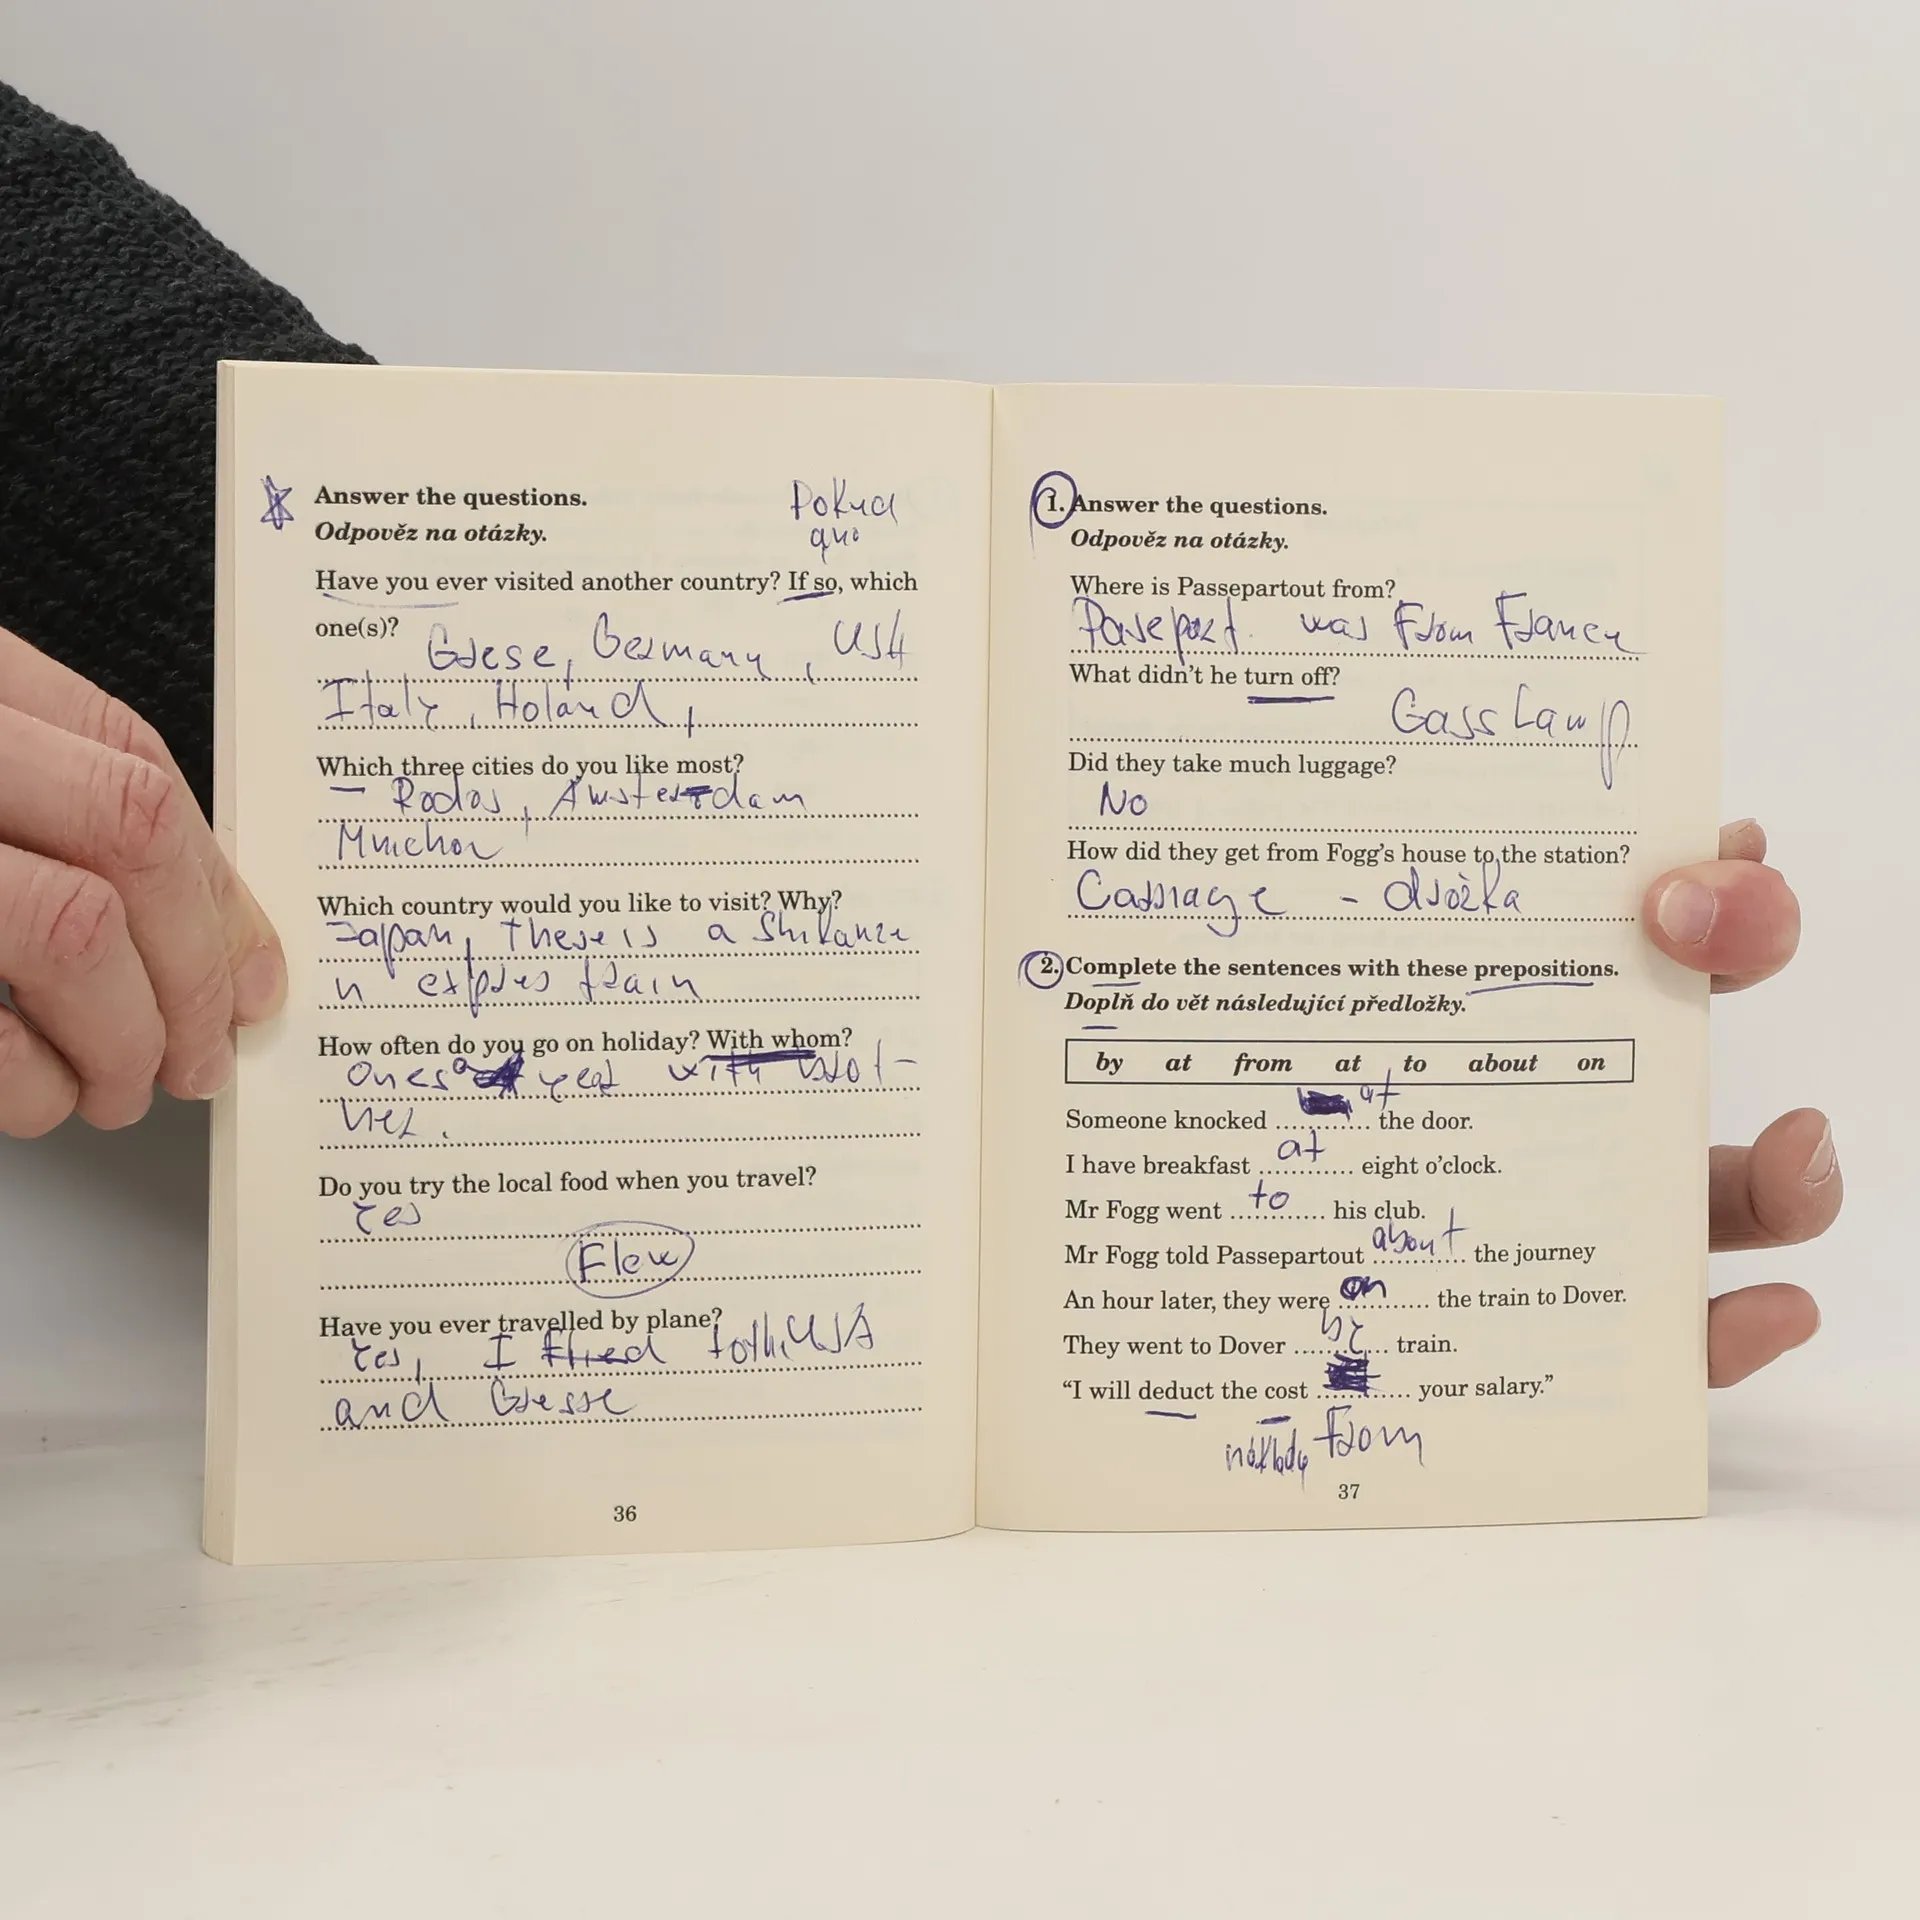 Answer the questions.
Pokud
Odpověz na otázky.
ano
Have you ever visited another country? If so, which
one(s)?
Grese, Germany, USA
Italy, Holand,
Which three cities do you like most?
Rodos, Amsterdam
Mnichov
Which country would you like to visit? Why?
Japan, there is a Shikanze
n expres train
How often do you go on holiday? With whom?
Ones a year with brot-
her.
Do you try the local food when you travel?
Yes
Flew
Have you ever travelled by plane?
Yes, I flied to the USA
and Gresse
36
1. Answer the questions.
Odpověz na otázky.
Where is Passepartout from?
Pasepart. was From France
What didn't he turn off?
Gass Lamp
Did they take much luggage?
No
How did they get from Fogg's house to the station?
Carriage - drožka
2. Complete the sentences with these prepositions.
Doplň do vět následující předložky.
by at from at to about on
Someone knocked ............ at the door.
I have breakfast ............ at eight o'clock.
Mr Fogg went ............ to his club.
Mr Fogg told Passepartout ............ about the journey
An hour later, they were ............ on the train to Dover.
They went to Dover ............ by train.
“I will deduct the cost ............ your salary.”
náklady From
37